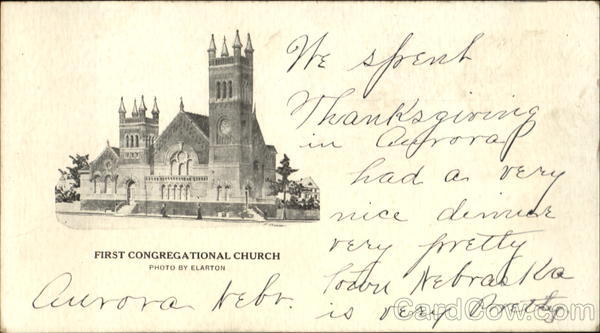 We spent
Thanksgiving
in Aurora
had a very
nice dinner
very pretty
Town Nebraska
is very Pretty
FIRST CONGREGATIONAL CHURCH
PHOTO BY ELARTON
Aurora Nebr.
CardCow.com